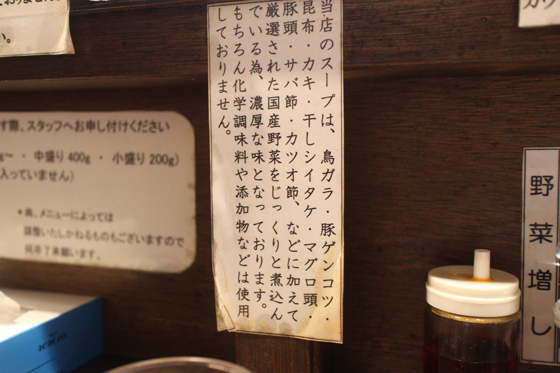 当店のスープは、鳥ガラ・豚ゲンコツ・
昆布・カキ・干しシイタケ・マグロ頭・
豚頭・サバ節・カツオ節、などに加えて
厳選された国産野菜をじっくりと煮込ん
でいる為、濃厚な味となっております。
もちろん化学調味料や添加物などは使用
しておりません。
野菜増し
す際、スタッフへお申し付けください
g〜・中盛り400g・小盛り200g)
入っていません)
*尚、メニューによっては
調整いたしかねるものもございますので
何卒了承願います。
い。